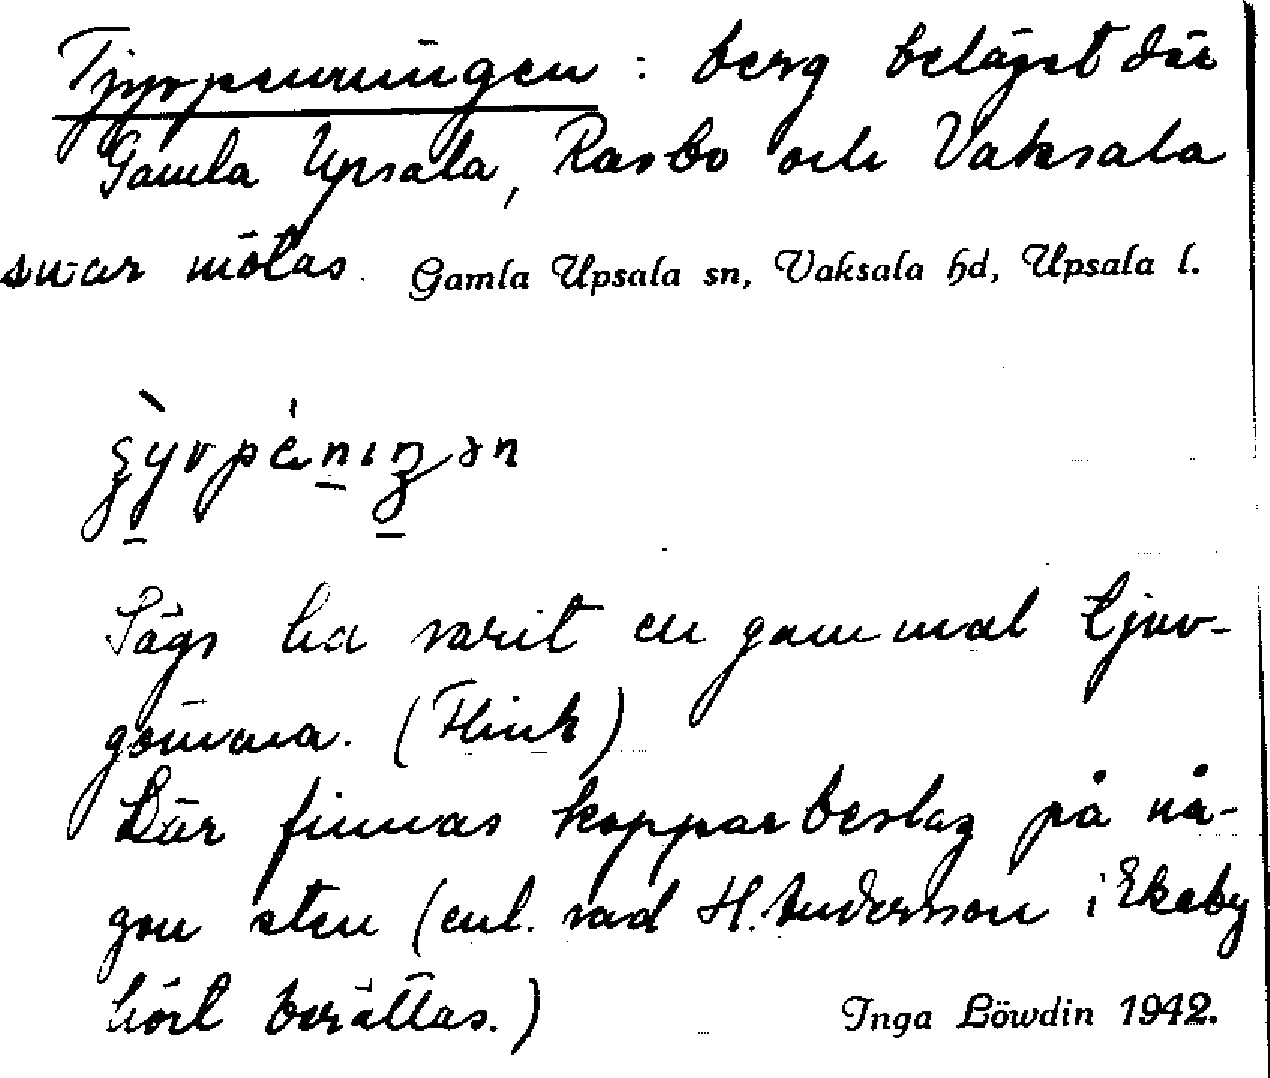 Tjyvpenningen: berg beläget där
Gamla Upsala, Rasbo och Vaksala
snar mötas. Gamla Upsala sn, Vaksala hd, Upsala l.
Sägs ha varit en gammal tjuv-
gömma. (Flink)
Där finnas kopparbeslag på nå-
gon sten (enl. vad H. Andersson i Ekeby
hört berättas.)
Inga Löwdin 1942.